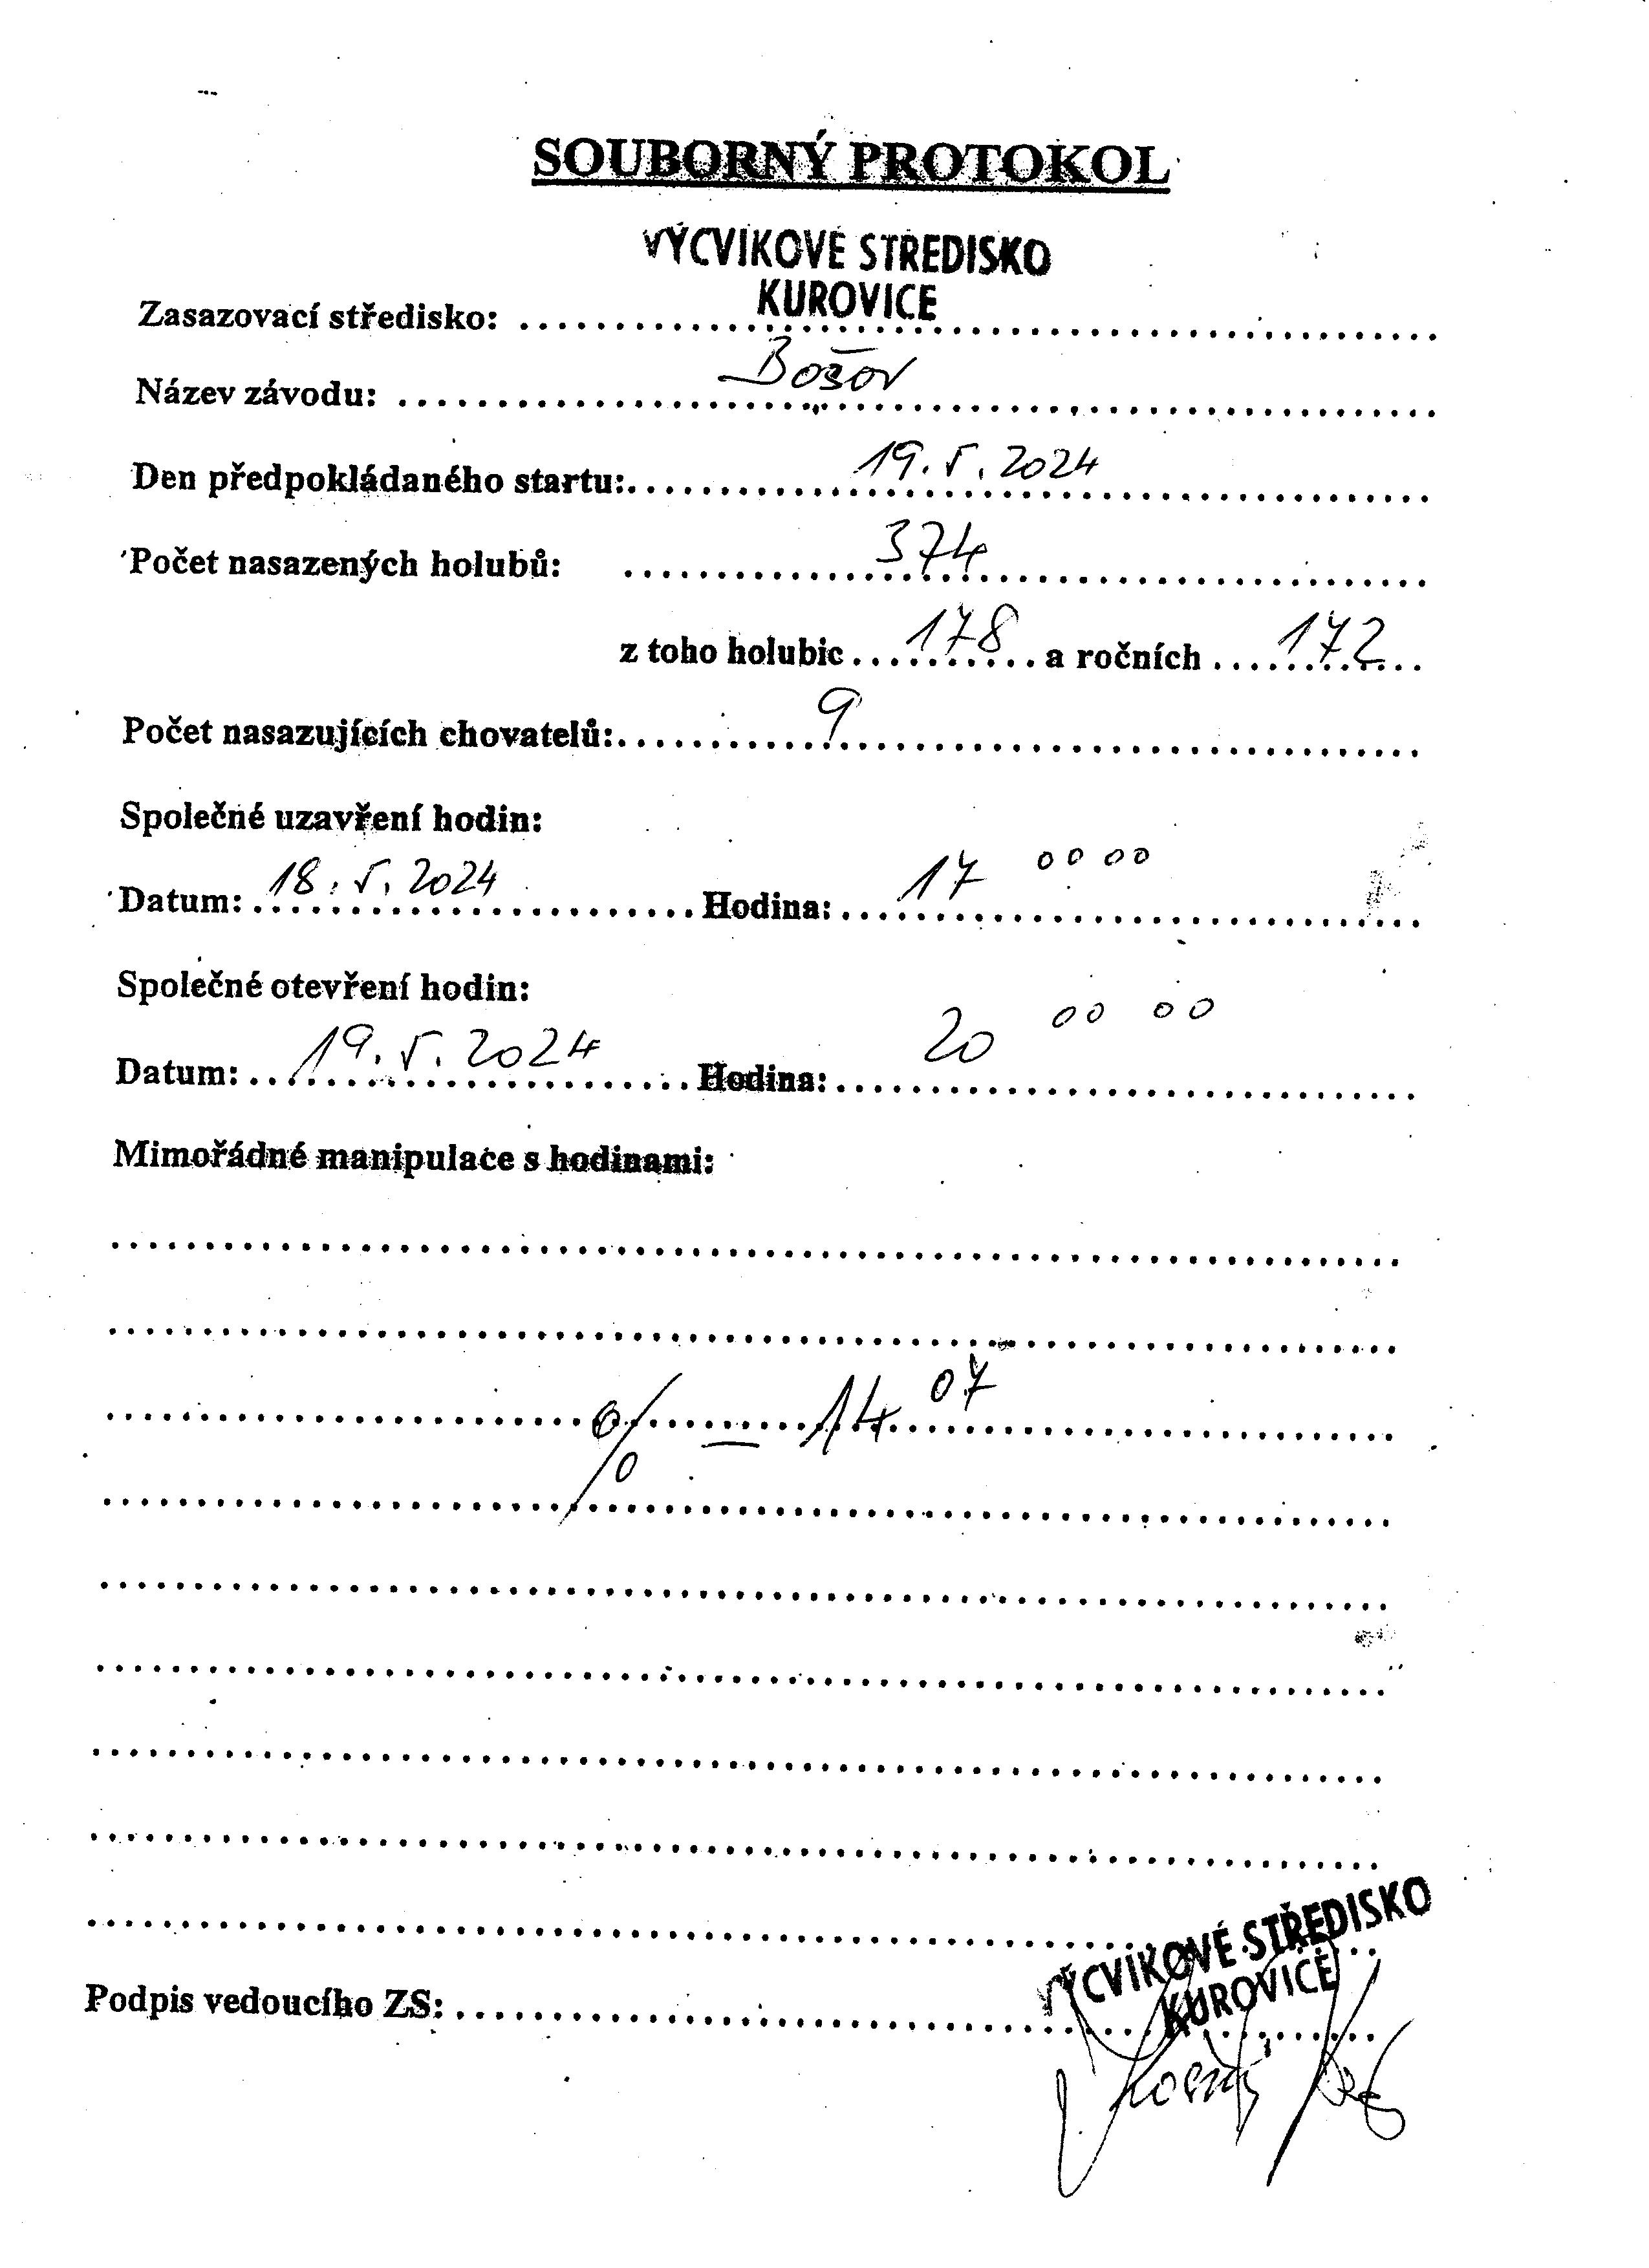 SOUBORNÝ PROTOKOL
VÝCVIKOVÉ STŘEDISKO
KUROVICE
Zasazovací středisko:
Název závodu: Bošov
Den předpokládaného startu: 19. 5. 2024
Počet nasazených holubů: 374
z toho holubic 178 a ročních 172
Počet nasazujících chovatelů: 9
Společné uzavření hodin:
Datum: 18. 5. 2024 Hodina: 17 00 00
Společné otevření hodin:
Datum: 19. 5. 2024 Hodina: 20 00 00
Mimořádné manipulace s hodinami:
0/0 — 14 07
VÝCVIKOVÉ STŘEDISKO
KUROVICE
Podpis vedoucího ZS: